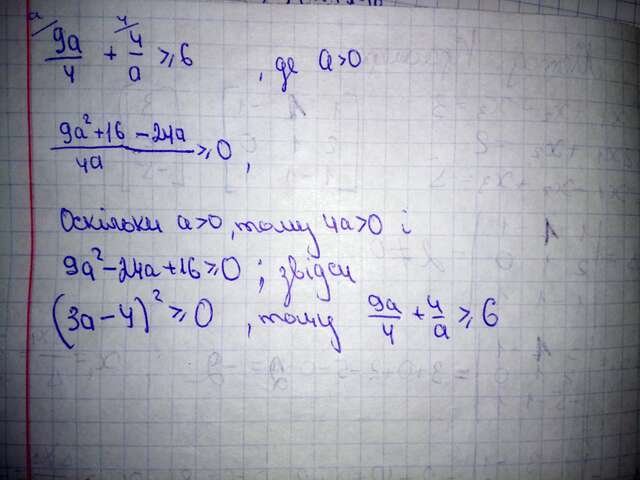 9a/4 + 4/a ≥ 6, де a>0
(9a²+16-24a)/4a ≥ 0,
Оскільки a>0, тому 4a>0 і
9a²-24a+16≥0; звідси
(3a-4)²≥0, тому 9a/4 + 4/a ≥ 6